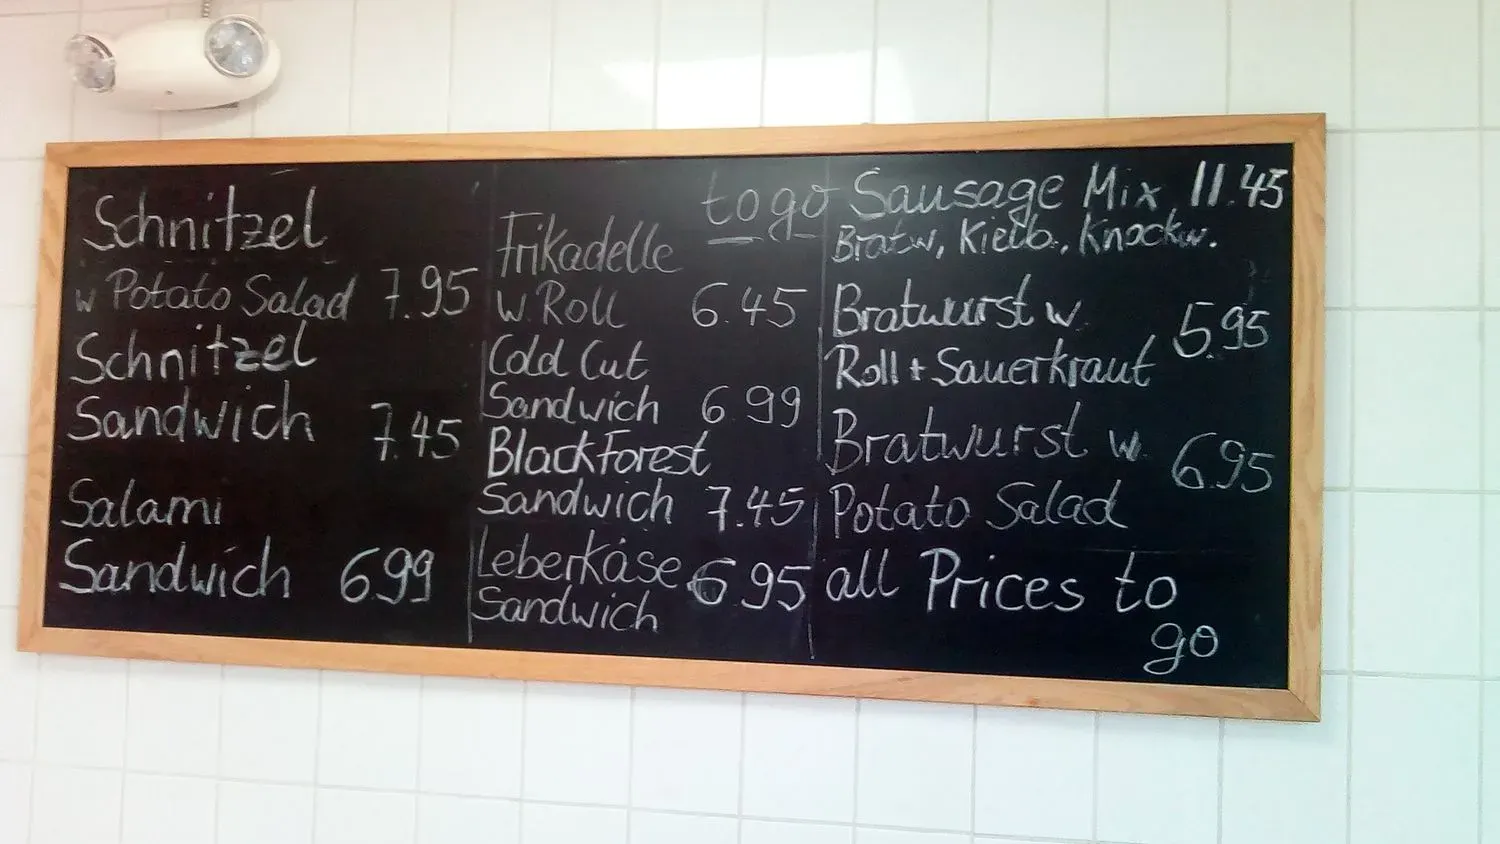 Schnitzel
w Potato Salad 7.95
Schnitzel
Sandwich 7.45
Salami
Sandwich 6.99
to go
Frikadelle
w. Roll 6.45
Cold Cut
Sandwich 6.99
Black Forest
Sandwich 7.45
Leberkäse 6.95
Sandwich
Sausage Mix 11.45
Bratw, Kielb., Knockw.
Bratwurst w. 5.95
Roll + Sauerkraut
Bratwurst w. 6.95
Potato Salad
all Prices to
go